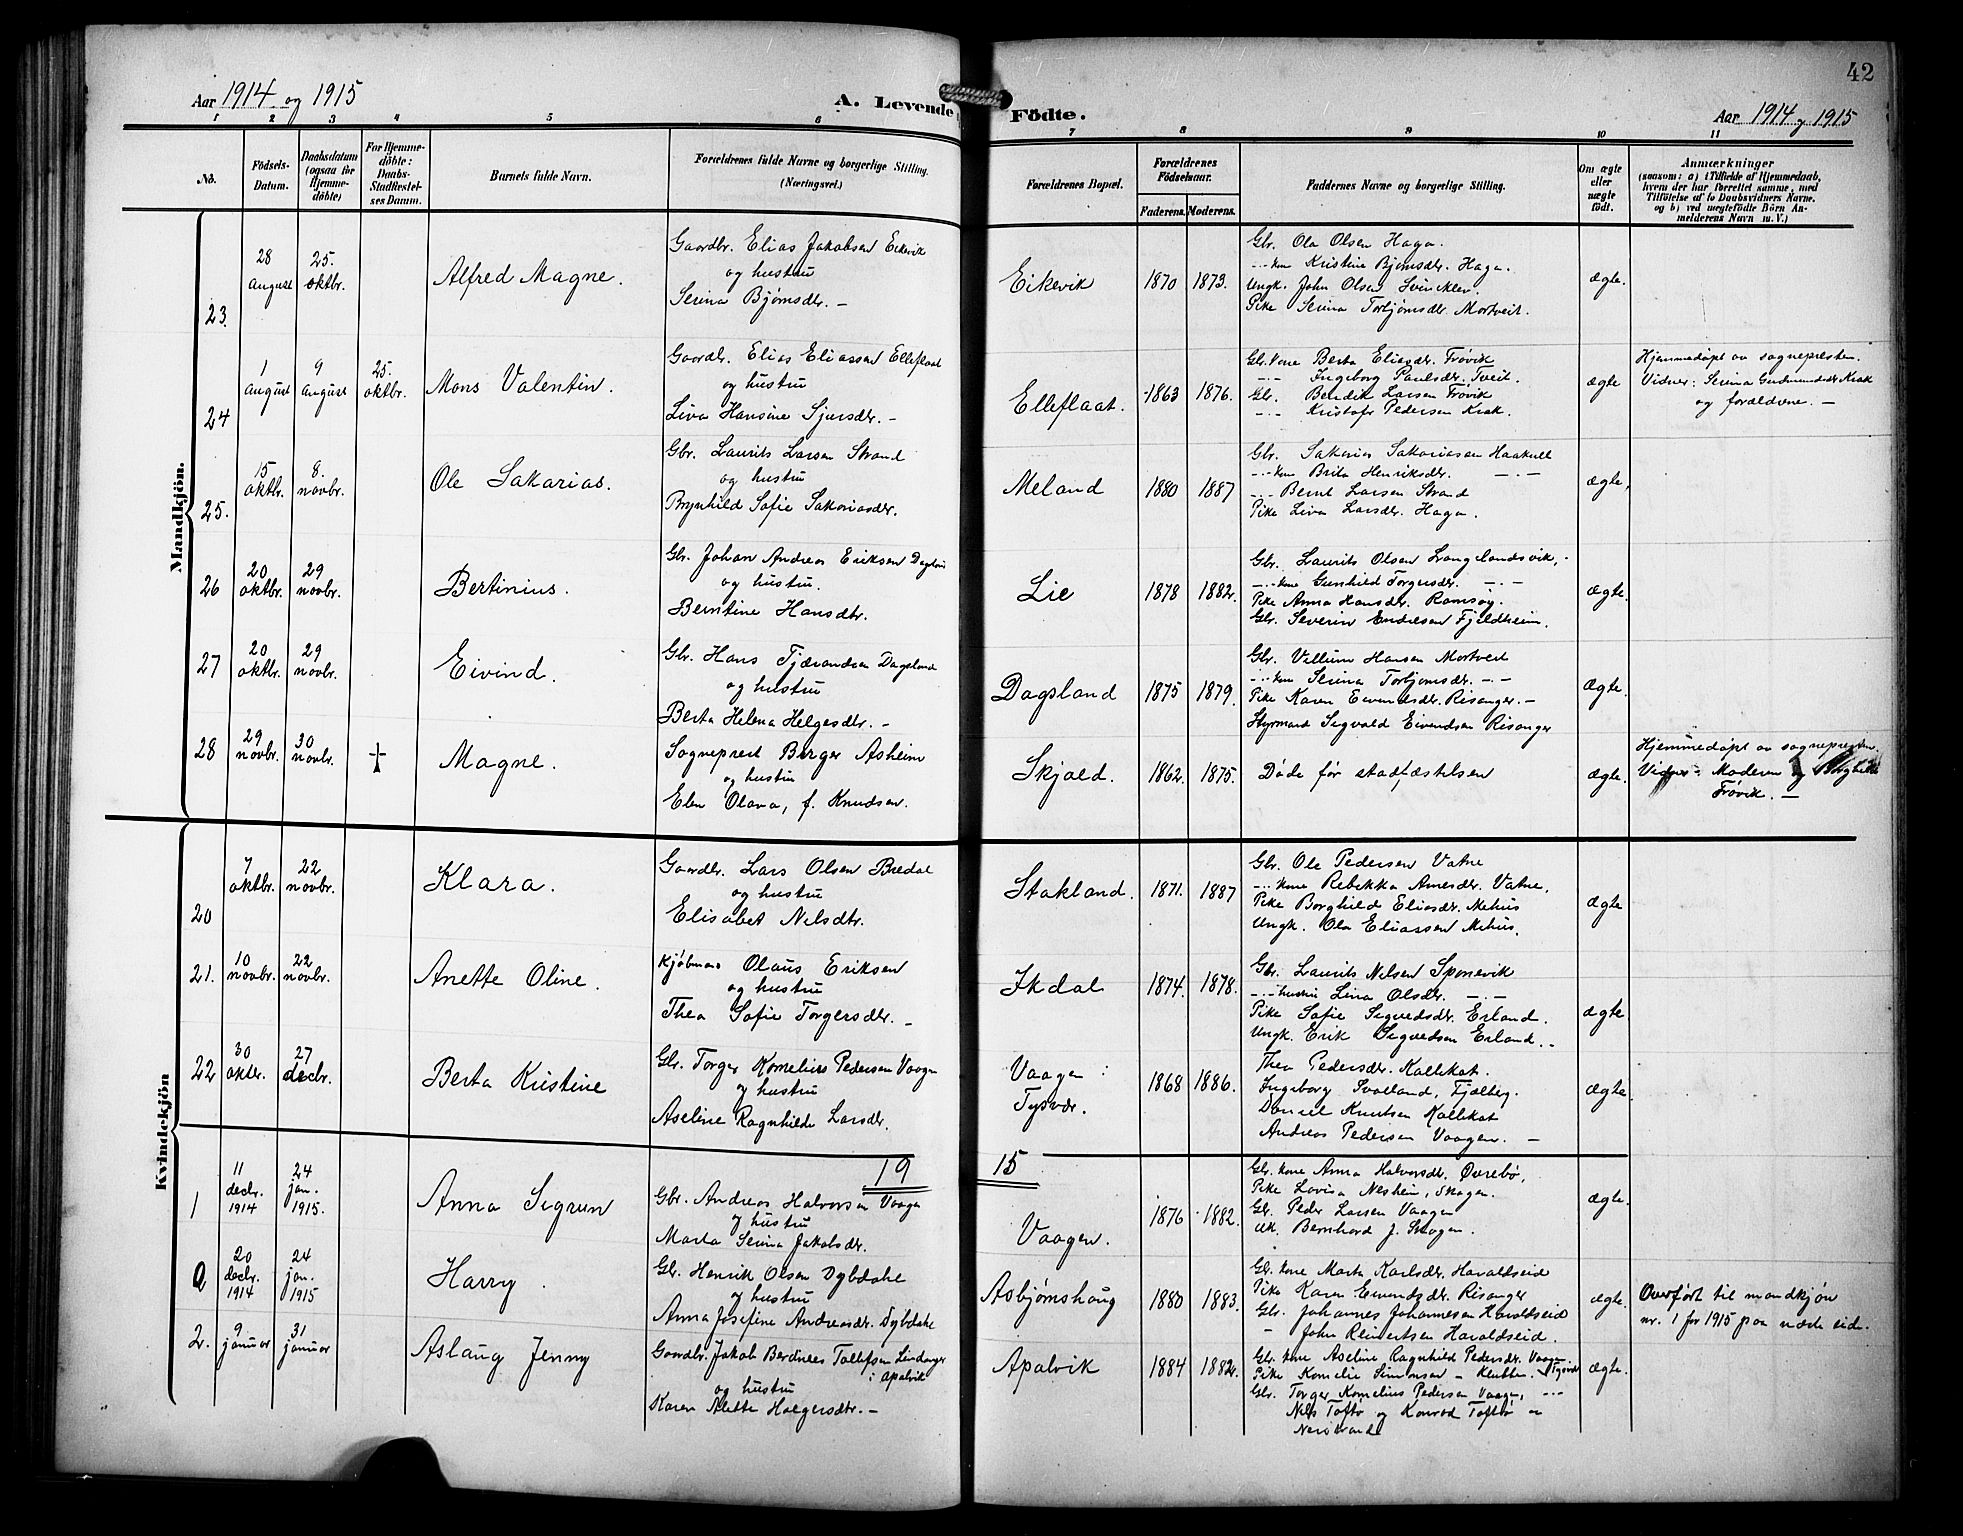 42
Aar 1914 og 1915
A. Levende Fødte.
Aar 1914 og 1915
1 2 3 4 5 6 7 8 9 10 11
No.
Födsels-
Datum.
Daabsdatum
(ogsaa for
Hjemme-
döbte)
For Hjemme-
döbte:
Daabs-
Stadfæstel-
ses Datum.
Barnets fulde Navn.
Forældrenes fulde Navne og borgerlige Stilling.
(Næringsvei.)
Forældrenes Bopæl.
Forældrenes
Födselsaar.
Faderens. Moderens.
Faddernes Navne og borgerlige Stilling.
Om ægte
eller
uægte
født.
Anmærkninger
(saasom: a) i Tilfælde af Hjemmedaab,
hvem der har forrettet samme, med
Tilföielse af to Daabsvidners Navne.
og b) ved uægtefödte Börn An-
melderens Navn m. V.)
Mandkjön.
23.
28
august
25.
oktbr.
Alfred Magne.
Gaardbr. Elias Jakobsen Eikevik
og hustru
Serina Bjørnsdtr. —
Eikevik
1870
1873.
Gbr. Ola Olsen Haga.
—"— kone Kristine Bjørnsdtr. Haga.
Ungk. John Olsen
Pike Serina Torbjørnsdtr. Mortveit.
ægte.
24
1
august
9
august
25.
oktbr.
Mons Valentin.
Gaardbr. Elias Eliassen Elleflaat
og hustru
Liva Hansine Sjursdtr. —
Elleflaat.
1863
1876.
Gbr. kone Berta Eliasdtr. Frøvik
—"— Ingeborg Paulsdtr. Tveit.
Gbr. Bendik Larsen Frøvik
—"— Kristofer Pedersen Krak.
ægte
Hjemmedøpt av sognepresten.
Vidner: Serina Gudmundsdtr Krak
og forældrene. —
25.
15
oktbr.
8.
novbr.
Ole Sakarias.
Gbr. Laurits Larsen Strand
og hustru
Brynhild Sofie Sakariasdtr.
Meland
1880
1887
Gbr. Sakarias Sakariassen Haakull
—"— kone Brita Henriksdtr. —"—
—"— Bernt Larsen Strand
Pike Liva Larsdtr. Haga.
ægte.
26
20
oktbr.
29
novbr.
Bertinius.
Gbr. Johan Andreas Eriksen
og hustru.
Berntine Hansdtr.
Lie
1878
1882.
Gbr. Laurits Olsen Langelandsvik, —
—"— kone Gunhild Torgersdtr. —"—
Pike Anna Hansdtr. Ramsøy.
Gbr. Severin Endresen Fjeldheim.
ægte.
27
20
oktbr.
29
novbr.
Eivind.
Gbr. Hans Tjærandsen Dagsland
og hustru
Berta Helena Helgesdtr. —
Dagsland
1875
1879.
Gbr. Villum Hansen Mortveit
—"— kone Serina Torbjørnsdtr. —"—
Pike Karen Eivendsdtr. Risanger. —
Styrmand Sigvald Eivendsen Risanger
ægte.
28
29
novbr.
30
novbr.
†
Magne.
Sogneprest Birger Asheim
og hustru
Elen Olava, f. Knudsen.
Skjold.
1862.
1875.
Døde før stadfæstelsen
ægte.
Hjemmedøpt av sognepresten.
Vidner: Moderen og Borghild
Frøvik. —
Kvindekjön
20
7
oktbr.
22
novbr.
Klara.
Gaardbr. Lars Olsen Bredal
og hustru
Elisabet Nilsdtr.
Stakland.
1871.
1887
Gbr. Ole Pedersen Vatne
—"— kone Rebekka Arnesdtr. Vatne.
Pike Borghild Eliasdtr. Mehus
Ungk. Ola Eliassen Mehus.
ægte
21.
10
novbr.
22
novbr.
Anette Oline.
Kjøbmand Olaus Eriksen
og hustru
Thea Sofie Torgersdtr. —
Ikdal
1874.
1878.
Gbr. Laurits Nilsen Sponevik
—"— hustru Lina Olsdtr. —"—
Pike Sofie Sigvedsdtr. Erland.
Ungk. Erik Sigvedsen Erland. —
ægte
22
30
oktbr.
27
decbr.
Berta Kristine
Gbr. Torger Kornelius Pedersen Vaagen
og hustru
Aseline Ragnhilde Larsdtr.
Vaagen :
Tysvær.
1868
1886.
Thea Pedersdtr. Kallekat.
Ingeborg Svolland, Fjælberg.
Daniel Knutsen Kallekat
Andreas Pedersen Vaagen. —
ægte
19 15
1
11
decbr.
1914
24
jan.
1915.
Anna Sigrun
Gbr. Andreas Halvorsen Vaagen
og hustru
Marta Serina Jakobsdtr.
Vaagen.
1876
1882.
Gbr. kone Anna Halvorsdtr. Øvrebø,
Pike Lovisa Nesheim, Skogen.
Gbr. Peder Larsen Vaagen
Uk. Bernhard J. Skogen.
ægte.
0
20
decbr.
1914
24
jan.
1915
Harry.
Gbr. Henrik Olsen Dybdahl
og hustru
Anna Josefine Andreasdtr. Dybdahl
Asbjørnshaug
1880
1883.
Gbr. kone Marta Karlsdtr. Haraldseid
Pike Karen Eivendsdtr. Risanger
Gbr. Johannes Johannesen Haraldseid
— John Reinertsen Haraldseid.
ægte.
Overført til mandkjøn
nr. 1 for 1915 paa næste side.
2.
9
januar
31
januar
Aslaug Jenny
Gaardbr. Jakob Berdines Tollefsen Lindanger
i Apalvik
og hustru
Karen Alette Holgersdtr. —
Apalvik
1884
1882.
Gbr. kone Aseline Ragnhild Pedersdtr. Vaagen, Tysvær
Pike Kornelie Simonsen —
Gbr. Torger Kornelius Pedersen Vaagen, —"—
Nils Toftø og Konrad Toftø —
Nerstrand
ægte.